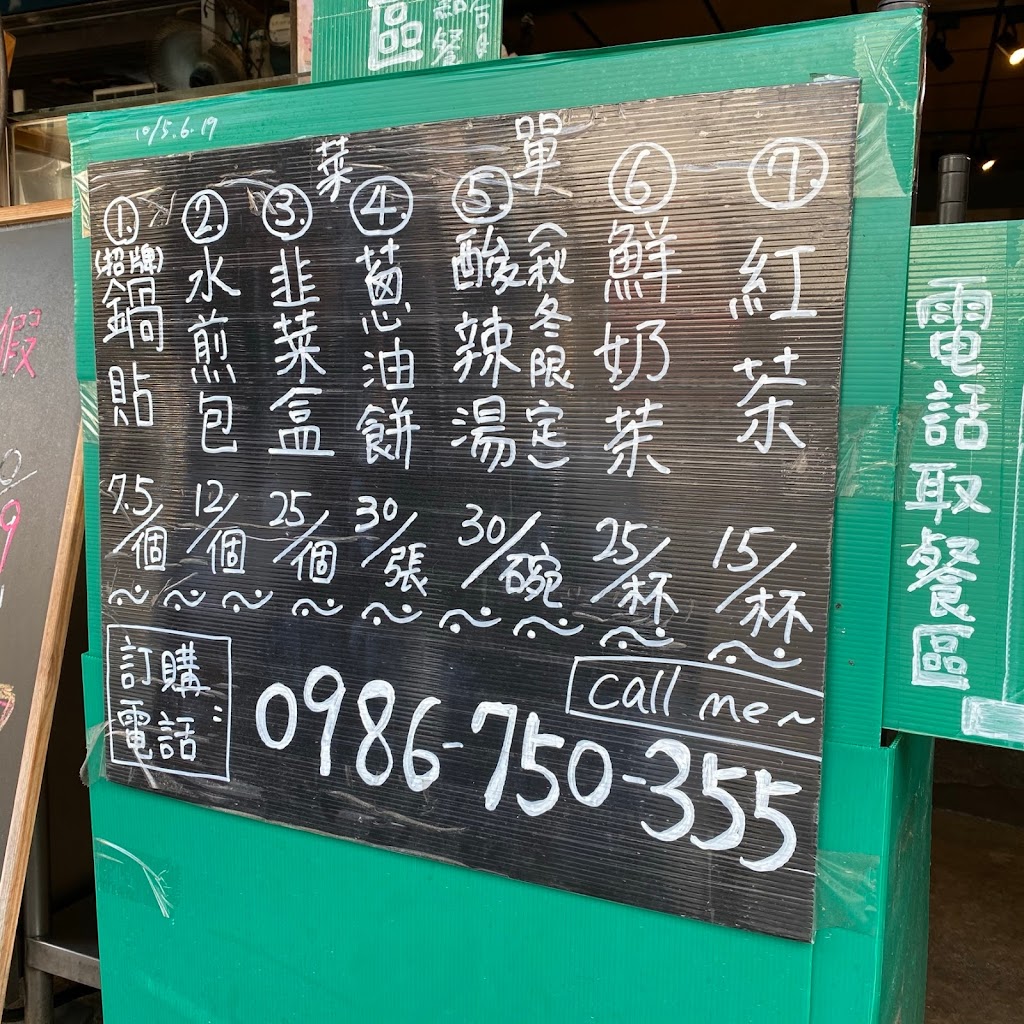 區
餐
10/5.6.19
菜單
①(招牌)鍋貼 7.5/個
②水煎包 12/個
③韭菜盒 25/個
④蔥油餅 30/張
⑤酸辣湯(秋冬限定) 30/碗
⑥鮮奶茶 25/杯
⑦紅茶 15/杯
訂購電話:
call me~
0986-750-355
電話取餐區
假
9